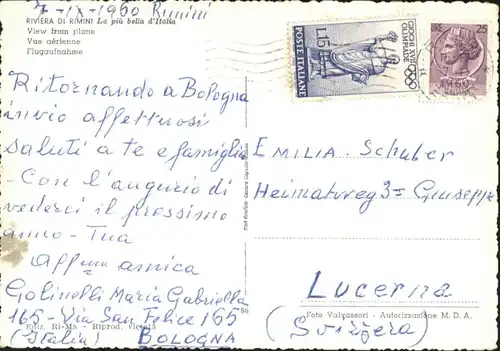 7-IX-1960 Rimini
RIVIERA DI RIMINI La più bella d'Italia
View from plane
Vue aérienne
Flugaufnahme
Ritornando a Bologna
invio affettuosi
saluti a te e famiglia
Con l'augurio di
vederci il prossimo
anno - Tua
Aff.ma amica
Golinelli Maria Gabriella
165 - Via San Felice 165
Ediz. Ri-Ma - Riprod. Vietata
(Italia) BOLOGNA
POSTE ITALIANE
L.15
GIOCHI XVII OLIMPIADE
LIRE 25
EMILIA - Schuber
Heimatweg 3= Giuseppe
Lucerna
Foto Valvassori - Autorizzazione M. D. A.
(Svizzera)